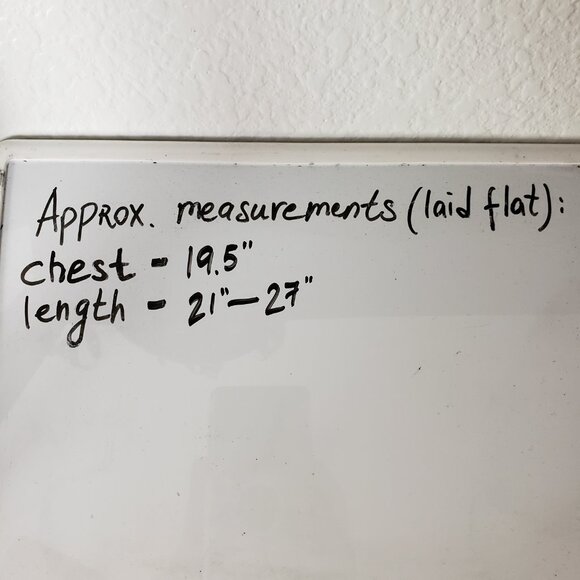 Approx. measurements (laid flat):
chest - 19.5"
length - 21"-27"